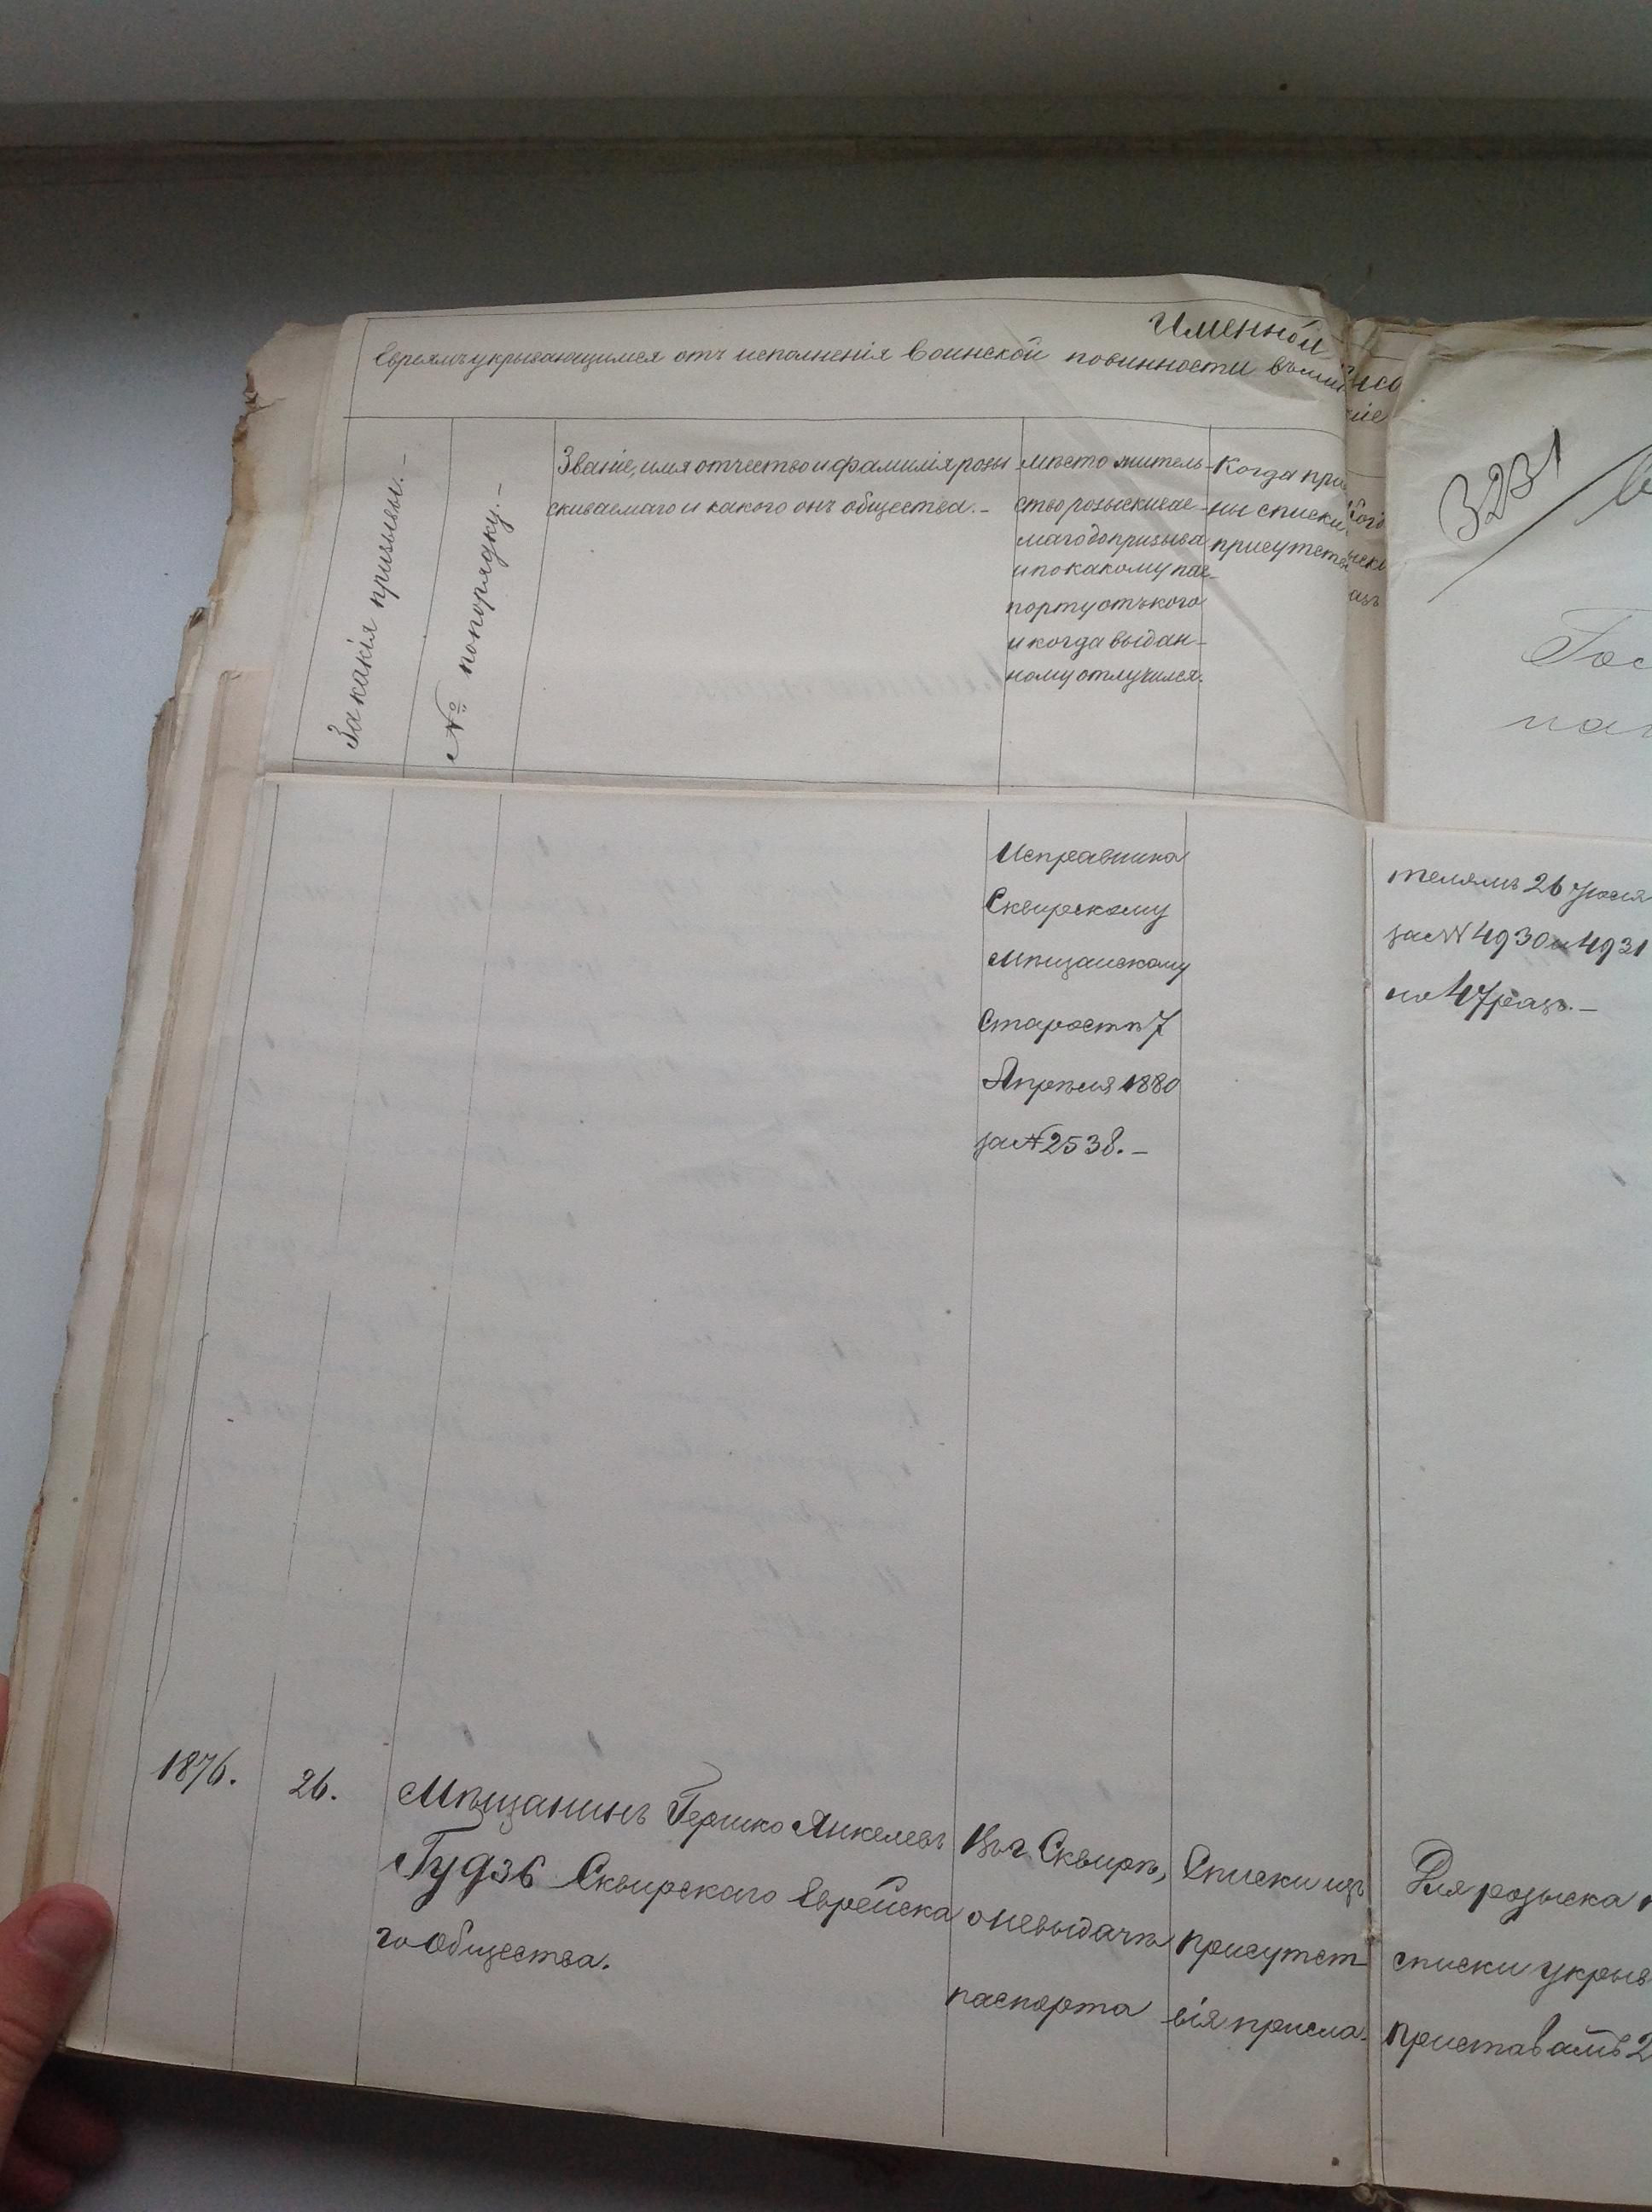 Именной
Евреямъ укрывающимся отъ исполненія воинской повинности
За какія призывы.-
№ попорядку.-
Званіе, имя отчество и фамилія розы
скиваемаго и какого онъ общества.-
мѣсто житель-
ство розыскивае-
маго до призыва
и по какому пас-
порту отъ кого
и когда выдан-
ному отлучился.
Когда при
ны списки
присутств
3231
Исправника
Сквирскому
Мѣщанскому
Старостѣ 7
Апрѣля 1880
за № 2538.-
телямъ 26 Іюня
за №№ 4930 и 4931
по 47 раз.-
1876.
26.
Мѣщанинъ Гершко Янкелевъ
Гудзъ Сквирскаго Еврейска
го Общества.
Въ г. Сквирѣ,
о невыдачѣ
паспорта
Списки изъ
присутст
вія присла-
Для розыска
списки укрыв
Приставамъ 2